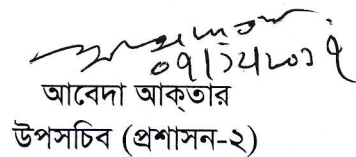 ০৭/১২/২০১৭
আবেদা আক্তার
উপসচিব (প্রশাসন-২)